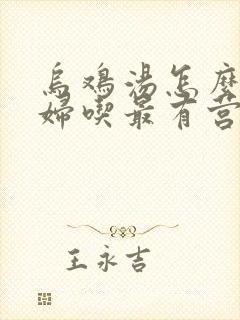 烏鸡湯怎麽
婦喫最有营
王永吉